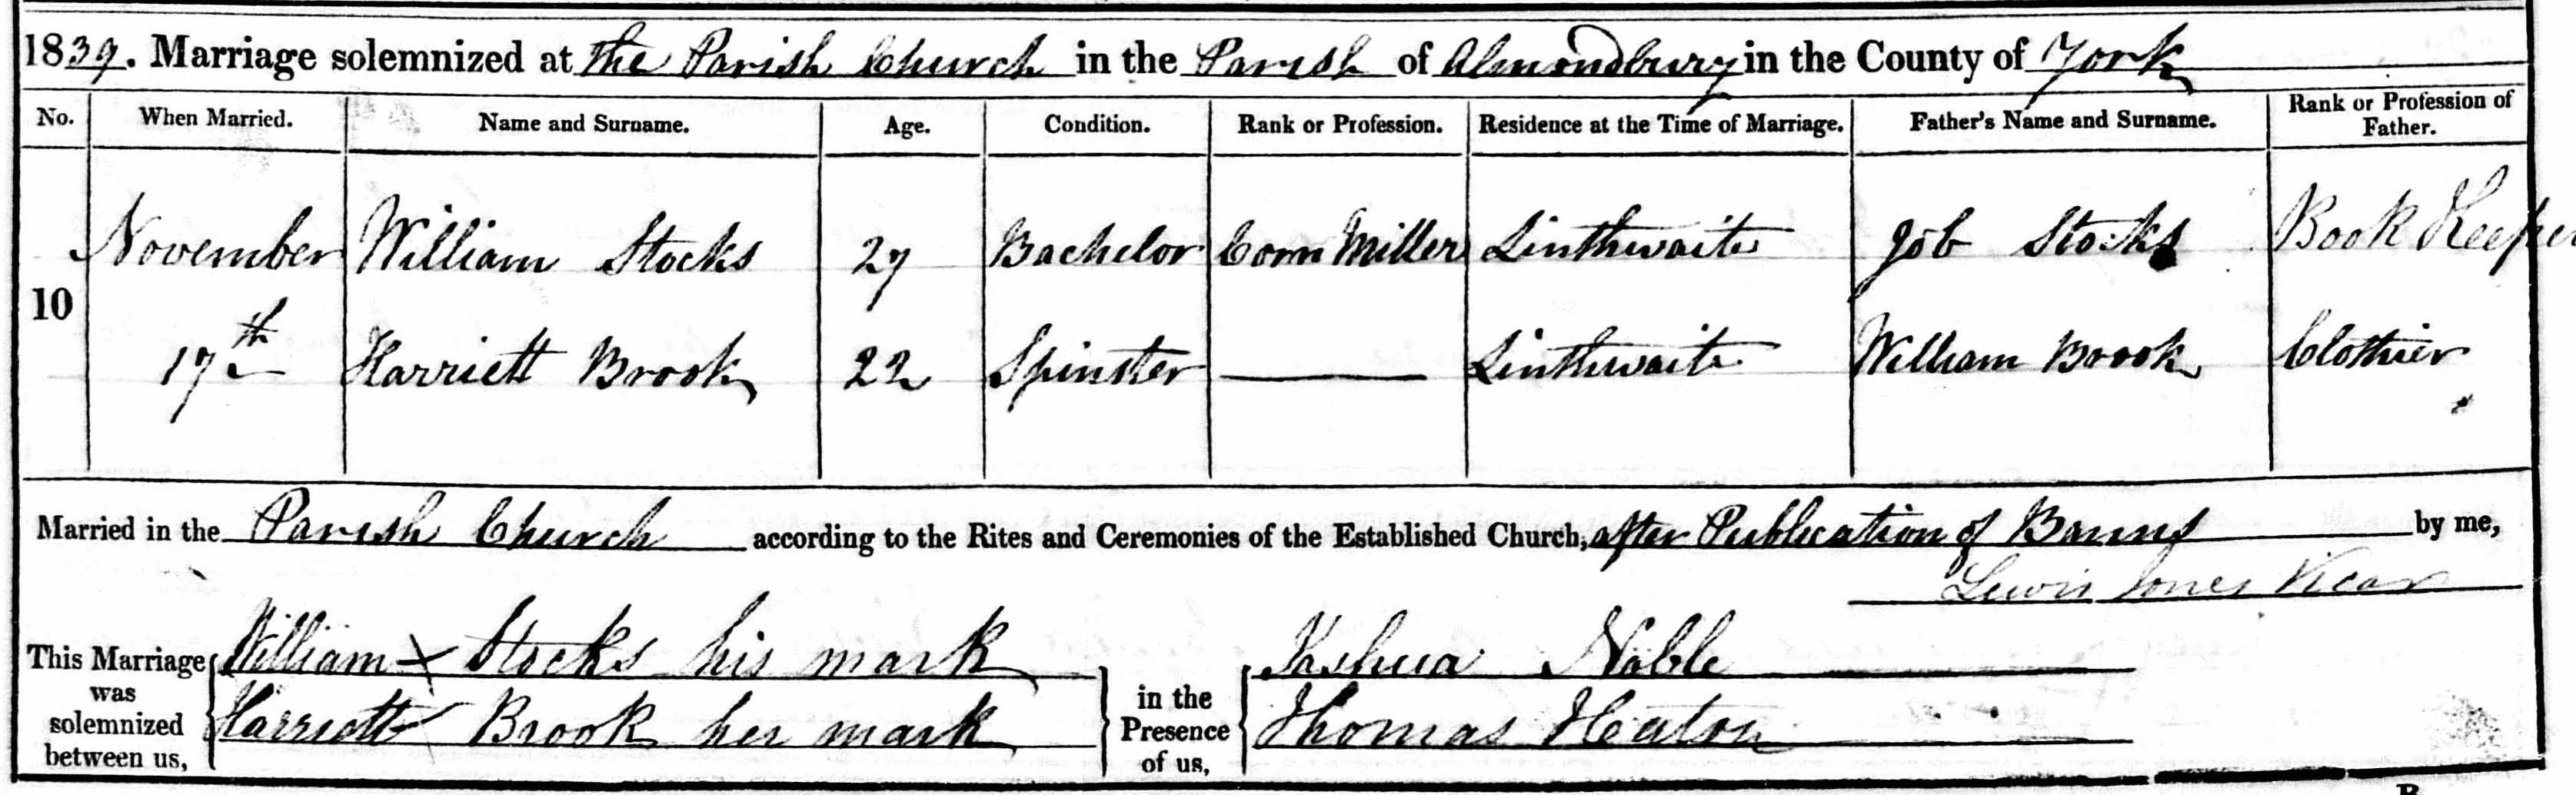 1839. Marriage solemnized at the Parish Church in the Parish of Almondbury in the County of York
No. When Married. Name and Surname. Age. Condition. Rank or Profession. Residence at the Time of Marriage. Father's Name and Surname. Rank or Profession of Father.
November William Stocks 27 Bachelor Corn Miller Linthwaite Job Stocks Book Keeper
10
17th Harriett Brook 22 Spinster Linthwaite William Brook Clothier
Married in the Parish Church according to the Rites and Ceremonies of the Established Church, after Publication of Banns by me,
Lewis Jones Vicar
This Marriage was solemnized between us,
William X Stocks his mark
Harriett X Brook her mark
in the Presence of us,
Joshua Noble
Thomas Heaton